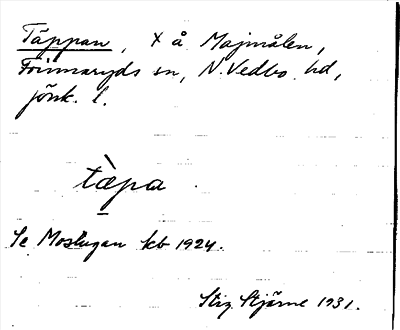 Täppan, x å Majmålen,
Frinnaryds sn, N. Vedbo hd,
jönk. l.
tæ̀pa
Se Moslugan kb 1924.
Stig Stjärne 1931.